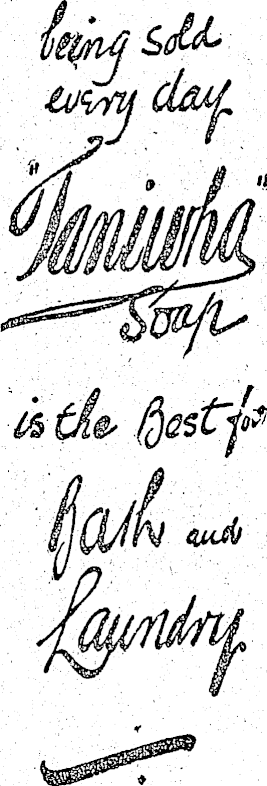 being sold
every day
"Taniwha"
Soap
is the Best for
Bath and
Laundry.